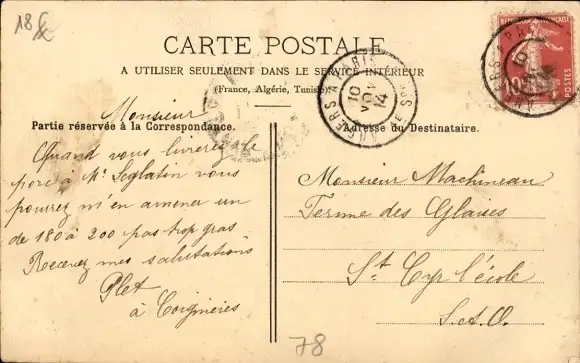 18
CARTE POSTALE
A UTILISER SEULEMENT DANS LE SERVICE INTÉRIEUR
(France, Algérie, Tunisie)
Partie réservée à la Correspondance.
Adresse du Destinataire.
Monsieur
Quand vous livrerez le
porc à Mr Seglatin vous
pourrez m'en amener un
de 180 à 200 pas trop gras
Recevez mes salutations
Plet
à Coignières
Monsieur Machineau
Ferme des Glaises
St Cyr l'école
S.&.O.
78
10
14
POSTES